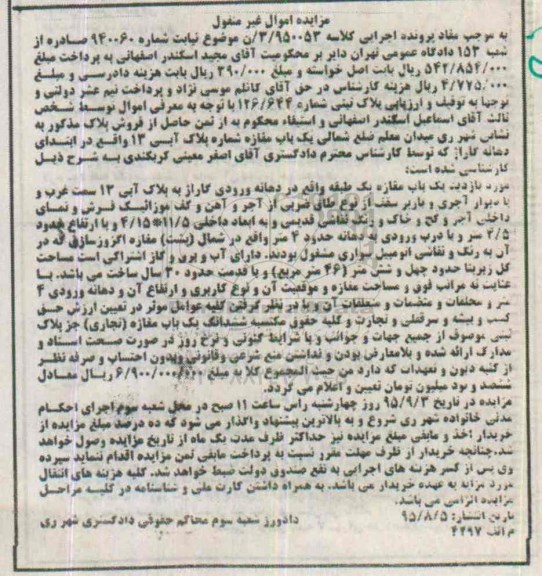 مزایده اموال غیر منقول
به موجب مفاد پرونده اجرایی کلاسه ۳/۹۵۰۰۵۳/ن موضوع نیابت شماره ۹۴۰۰۶۰ صادره از
شعب ۱۵۳ دادگاه عمومی تهران دایر بر محکومیت آقای مجید اسکندر اصفهانی به پرداخت مبلغ
۵۴۲/۸۵۴/۰۰۰ ریال بابت اصل خواسته و مبلغ ۳۹۰/۰۰۰ ریال بابت هزینه دادرسی و مبلغ
۴/۷۷۵/۰۰۰ ریال هزینه کارشناس در حق آقای کاظم موسی نژاد و پرداخت نیم عشر دولتی و
توجها به توقیف و ارزیابی پلاک ثبتی شماره ۱۲۶/۶۴۴ با توجه به معرفی اموال توسط شخص
ثالث آقای اسماعیل اسکندر اصفهانی و استیفاء محکوم به از ثمن حاصل از فروش پلاک مذکور به
نشانی شهر ری میدان معلم ضلع شمالی یک باب مغازه شماره پلاک آبی ۱۳ واقع در ابتدای
دهانه گاراژ که توسط کارشناس محترم دادگستری آقای اصغر معینی کربکندی به شرح ذیل
کارشناسی شده است:
مورد بازدید یک باب مغازه یک طبقه واقع در دهانه ورودی گاراژ به پلاک آبی ۱۳ سمت غرب و
با دیوار آجری و باربر سقف از نوع طاق ضربی از آجر و آهن و کف موزائیک فرش و نمای
داخلی آجر و گچ و خاک و رنگ نقاشی قدیمی و به ابعاد داخلی ۱۱/۵*۴/۱۵ و با ارتفاع حدود
۴/۵ متر و با درب ورودی به دهانه حدود ۴ متر واقع در شمال (پشت) مغازه اگزوزسازی که در
آن به رنگ و نقاشی اتومبیل سواری مشغول بودند. دارای آب و برق و گاز اشتراکی است مساحت
کل زیربنا حدود چهل و شش متر (۴۶ متر مربع) و با قدمت حدود ۳۰ سال ساخت می باشد. با
عنایت به مراتب فوق و مساحت مغازه و موقعیت آن و نوع کاربری و ارتفاع آن و دهانه ورودی ۴
متر و محلقات و متضمات و متعلقات آن و با در نظر گرفتن کلیه عوامل موثر در تعیین ارزش حق
کسب و پیشه و سرقفلی و تجارت و کلیه حقوق مکتسبه ششدانگ یک باب مغازه (تجاری) جز پلاک
ثبتی موصوف از جمیع جهات و جوانب و با شرایط کنونی و نرخ روز در صورت صحت اسناد و
مدارک ارائه شده و بلامعارض بودن و نداشتن منع شرعی وقانونی وبدون احتساب و صرفه نظر
از کلیه دیون و تعهدات که دارد من حیث المجموع کلا به مبلغ ۶/۹۰۰/۰۰۰/۰۰۰ ریال معادل
ششصد و نود میلیون تومان تعیین و اعلام می گردد.
مزایده در تاریخ ۹۵/۹/۳ روز چهارشنبه راس ساعت ۱۱ صبح در محل شعبه سوم اجرای احکام
مدنی خانواده شهر ری شروع و به بالاترین پیشنهاد واگذار می شود که ده درصد مبلغ مزایده از
خریدار اخذ و مابقی مبلغ مزایده نیز حداکثر ظرف مدت یک ماه از تاریخ مزایده وصول خواهد
شد.چنانچه خریدار از ظرف مهلت مقرر نسبت به پرداخت مابقی ثمن مزایده اقدام ننماید سپرده
وی پس از کسر هزینه های اجرایی به نفع صندوق دولت ضبط خواهد شد. کلیه هزینه های انتقال
مورد مزایه به عهده خریدار می باشد. به همراه داشتن کارت ملی و شناسنامه در کلیه مراحل
مزایده الزامی می باشد.
تاریخ انتشار: ۹۵/۸/۵ دادورز شعبه سوم محاکم حقوقی دادگستری شهر ری
م الف ۴۴۹۷